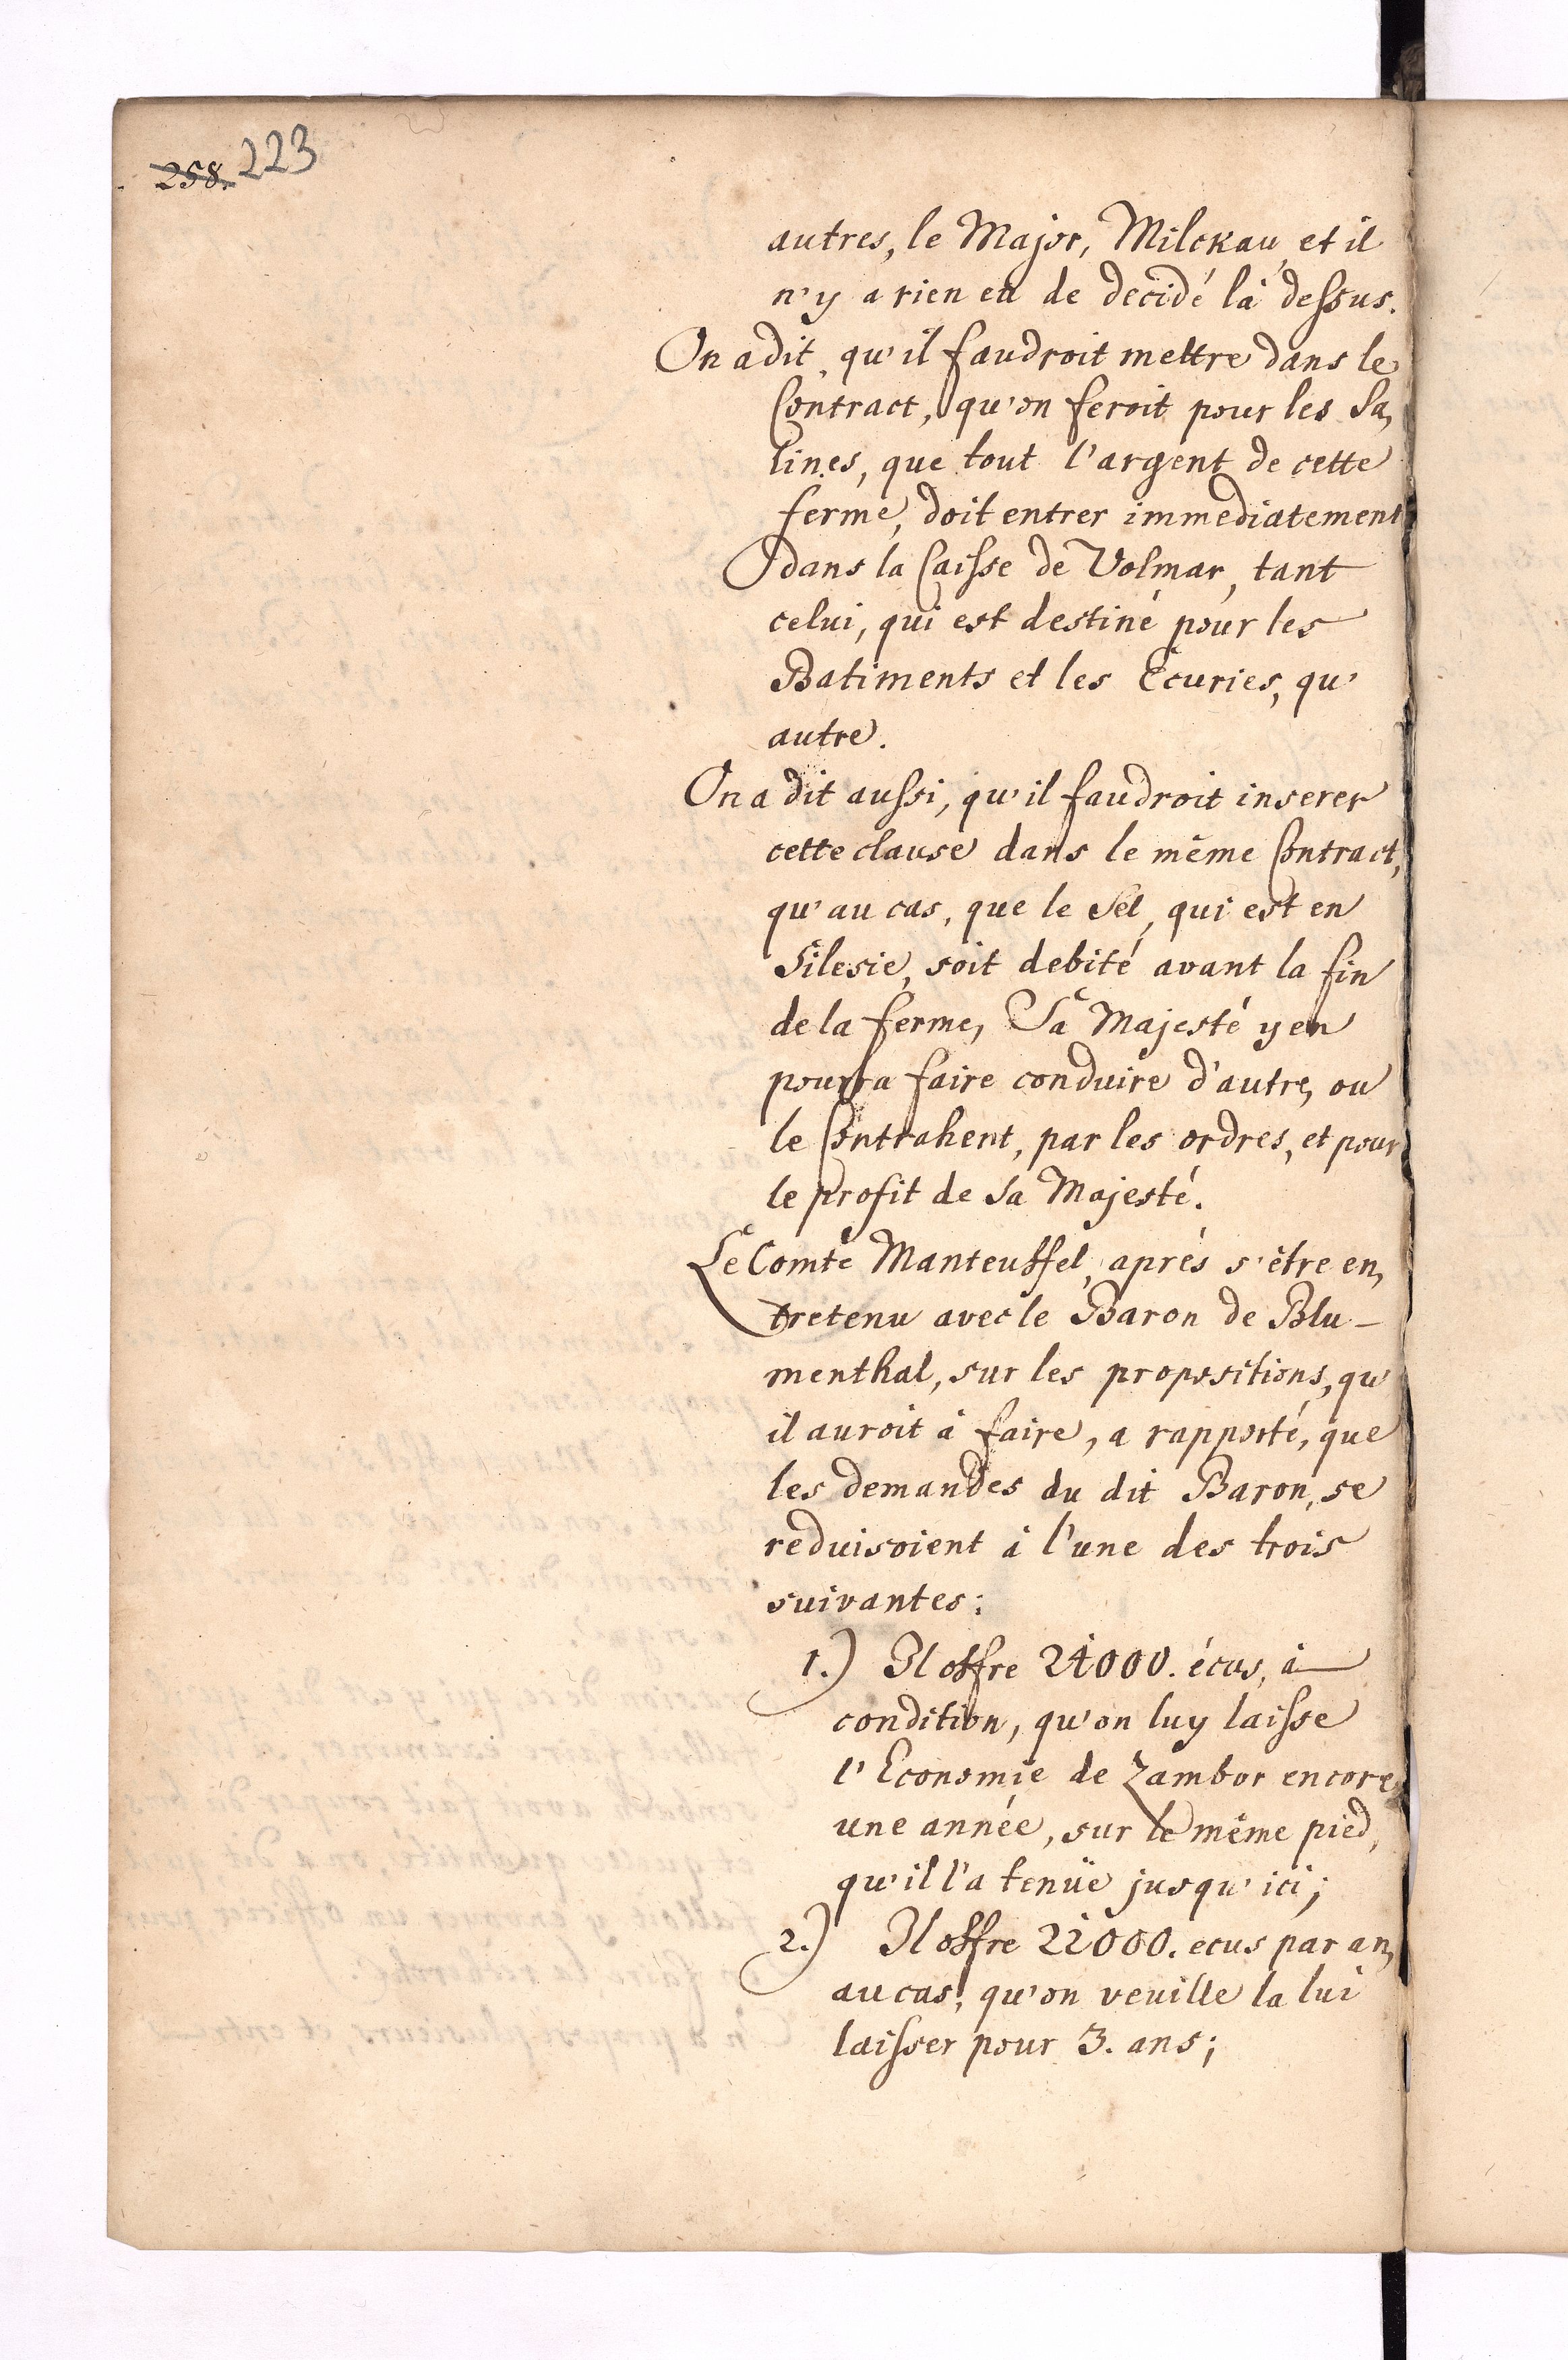 258. 223
autres, le Major, Milckau, et il
n'y a rien eu de decidé là dessus.
On a dit, qu'il faudroit mettre dans le
Contract, qu'on feroit pour les Sa,
lines, que tout l'argent de cette
ferme, doit entrer immediatement
dans la Caisse de Volmar, tant
celui, qui est destiné pour les
Batiments et les Ecuries, qu'
autre.
On a dit aussi, qu'il faudroit inserer
cette clause dans le même Contract,
qu'au cas, que le Sel, qui est en
Silesie, soit debité avant la fin
de la ferme, Sa Majesté y en
pourra faire conduire d'autre, ou
le Contrahent, par les ordres, et pour
le profit de Sa Majesté.
Le Comte Manteuffel, après s'être en,
tretenu avec le Baron de Blu-
menthal, sur les propositions, qu'
il auroit à faire, a rapporté, que
les demandes du dit Baron, se
reduisoient à l'une des trois
suivantes:
1.) Il offre 24000. écus, à
condition, qu'on luy laisse
l'Economie de Zambor encore
une année, sur le même pied,
qu'il l'a tenüe jusqu'ici;
2.) Il offre 22000. ecus par an,
au cas, qu'on veuille la lui
laisser pour 3. ans;